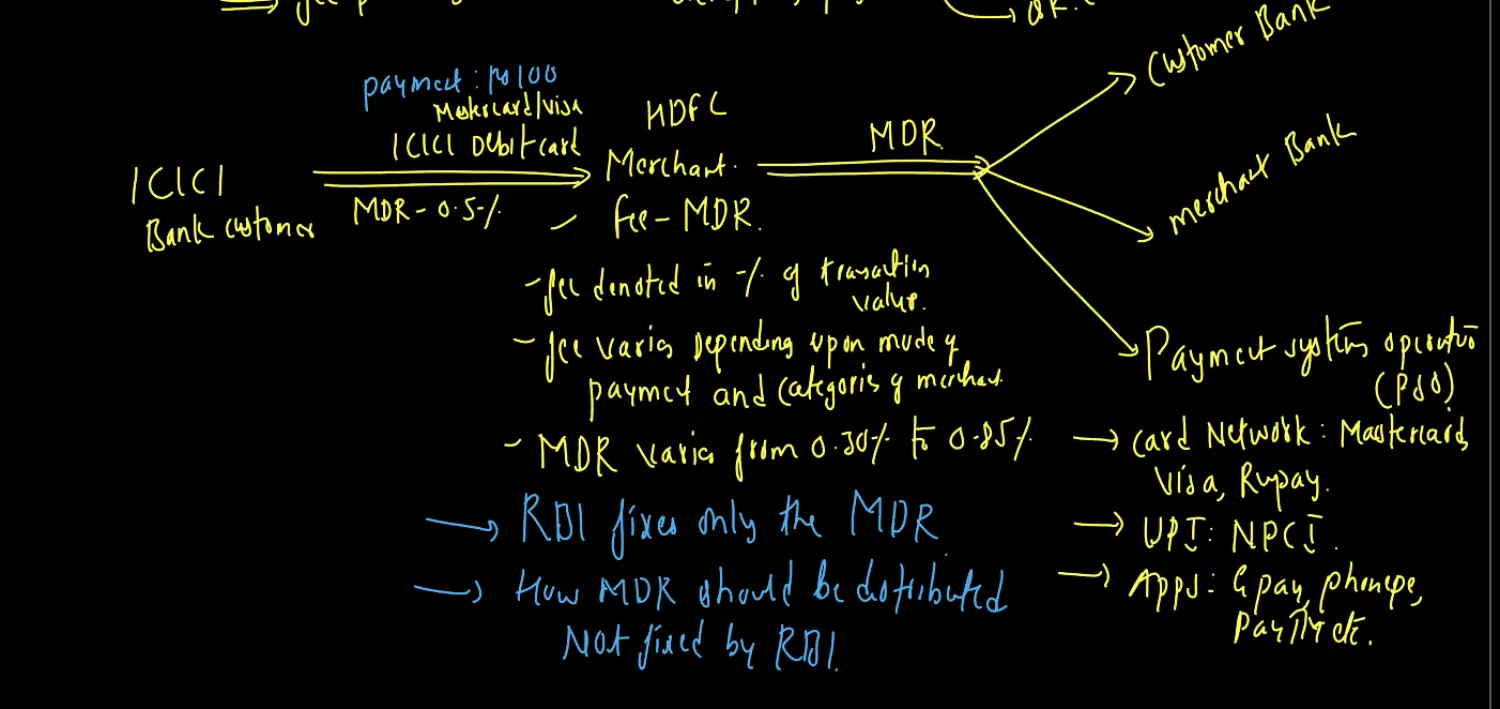 payment : Rs 100
Mastercard/visa
ICICI Debit card
ICICI
Bank customer
MDR - 0.5%
HDFC
Merchant.
fee - MDR.
MDR
Customer Bank
merchant Bank
Payment system operator
(PSO)
- fee denoted in % of transaction
value.
- fee varies depending upon mode of
payment and categories of merchant
- MDR varies from 0.30% to 0.85%
→ RBI fixes only the MDR
→ How MDR should be distributed
Not fixed by RBI.
→ Card Network : Mastercard,
Visa, Rupay.
→ UPI : NPCI.
→ Apps : Gpay, phonepe,
PayTM etc.